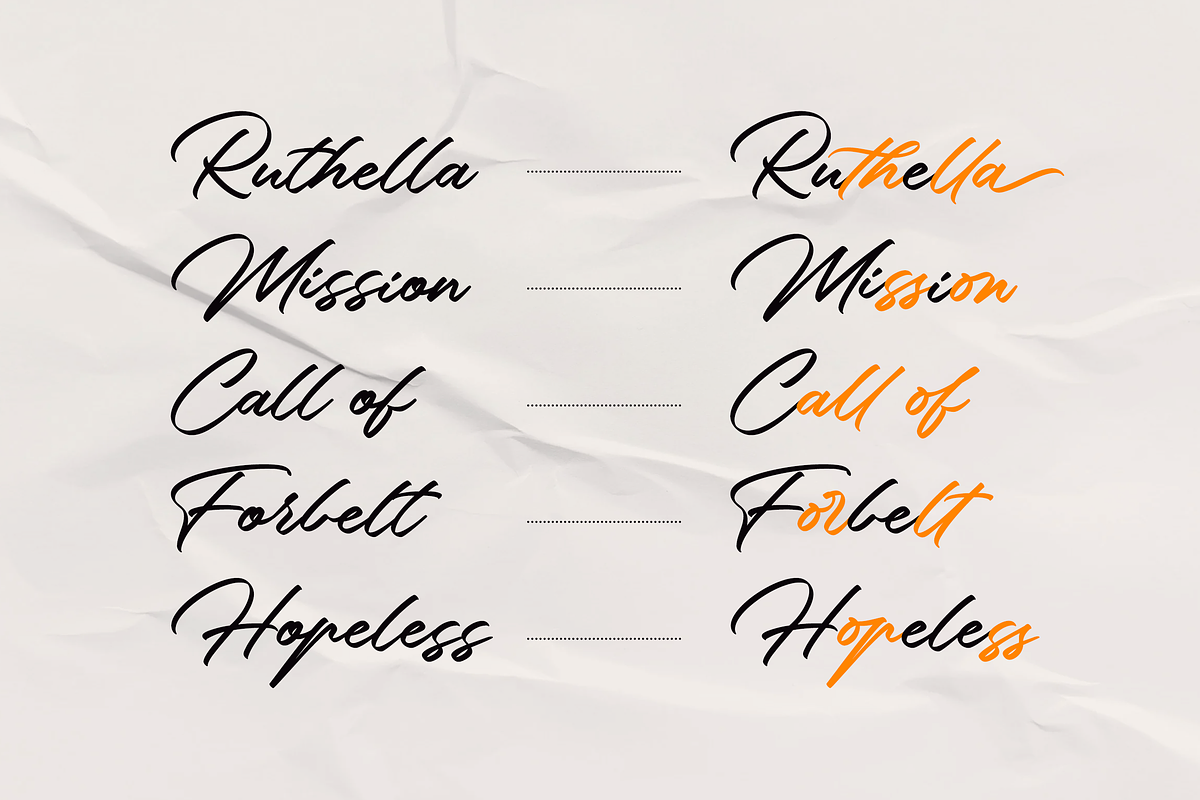 Ruthella Ruthella
Mission Mission
Call of Call of
Forbelt Forbelt
Hopeless Hopeless